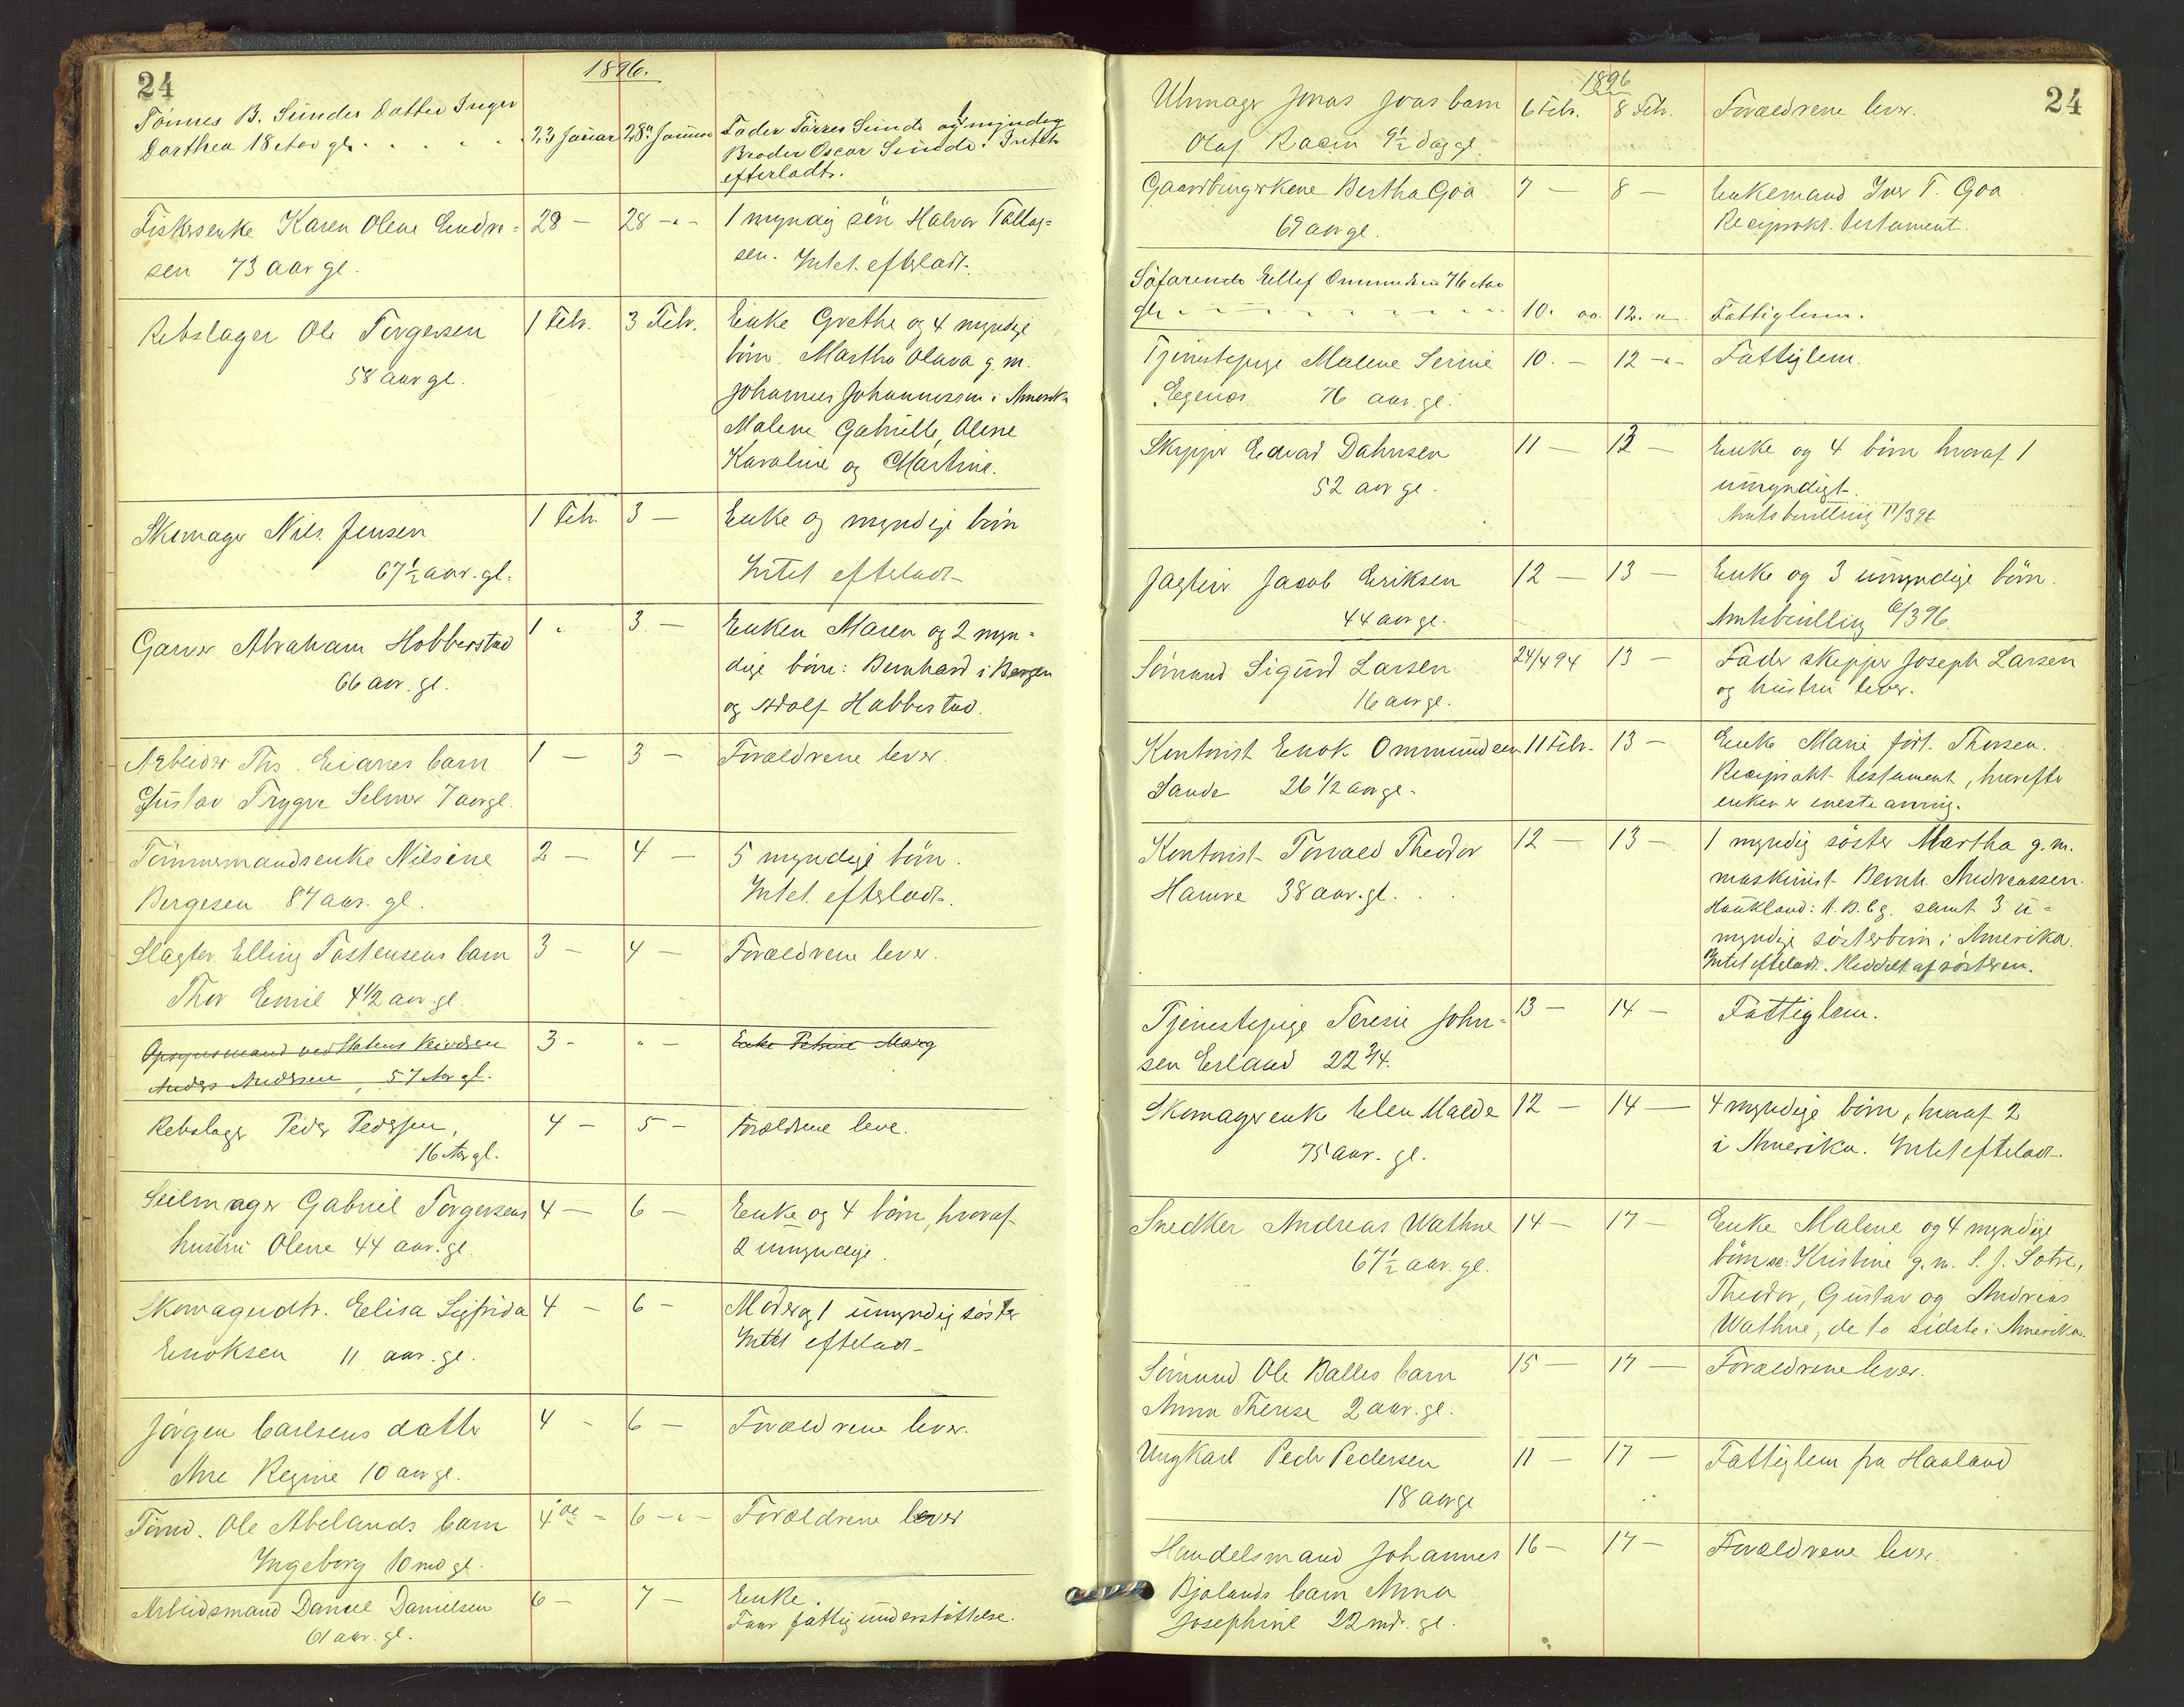 24
1896.
Tönnes B. Sundes Datter Inger
Dorthea 18 Aar gl. . . . . . 23 Januar 28de Januar Fader Tönnes Sunde og myndig
Broder Oscar Sunde. Intet
efterladt.
Fiskerenke Karen Olene Endre= 29 — 28 -"- 1 myndig søn Halvor Tallag=
sen 73 aar gl. sen. Intet efterladt.
Rebslager Ole Torgersen 1 Febr. 3 Febr. Enke Grethe og 4 myndige
58 aar gl. börn. Martha Olava g. m.
Johannes Johannessen i Amerika
Malene Gabrielle, Olene
Karoline og Martine.
Skomager Nils Jensen 1 Febr. 3 — Enke og myndige börn
67½ aar. gl. Intet efterladt
Garver Abraham Hobberstad 1 " 3 — Enken Maren og 2 myn=
66 aar. gl. dige börn: Bernhard i Bergen
og Adolf Hobberstad.
Arbeider Ths. Eianes barn 1 — 3 — Forældrene lever.
Gustav Trygve Selmer 7 aar gl.
Tömmermandsenke Nilsine 2 — 4 — 5 myndige börn.
Bergesen 87 aar. gl. Intet efterladt.
Slagter Elling Tostensens barn 3 — 4 — Forældrene lever.
Thor Emil 4½ aar gl.
Opsynsmand ved Statens 3 - " - Enke Petrine Marg
Anders Andersen, 57 Aar gl.
Rebslager Peder Pedersen, 4 — 5 — Forældrene leve.
16 Aar gl.
Seilmager Gabriel Torgersens 4 — 6 — Enke og 4 börn, hvoraf
hustru Olene 44 aar. gl. 2 umyndige.
Skomagerdtr. Elisa Sigfrida 4 — 6 — Moder og 1 umyndig söster
Enoksen 11 aar. gl. Intet efterladt
Jörgen Carlsens datter 4 - 6 — Forældrene lever.
Ane Regine 10 aar gl.
Tömd. Ole Abelands barn 4de - 6 -"- Forældrene lever
Ingeborg 10 md gl.
Arbeidsmand Daniel Danielsen 6 — 7 — Enke.
61 aar. gl. Faar fattigunderstöttelse.
1896
24
Uhrmager Jonas Joas barn 6 Febr. 8 Febr. Forældrene lever.
Olaf 9½ dag gl.
Gaardbrugerkone Bertha Goa 7 — 8 — Enkemand Iver T. Goa
69 aar gl. Reciprokt testament.
Söfarende Ellef Ommundsen 76 Aar
gl. - - - - 10. " 12. " Fattiglem.
Tjenestepige Malene Serine 10. — 12 -"- Fattiglem.
Egenæs 76 aar. gl.
Skipper Edvard Dahnsen 11 — 13 — Enke og 4 börn hvoraf 1
52 aar gl. umyndigt.
Amtsbevilling 17/3 96
Jagteier Jacob Eriksen 12 — 13 — Enke og 3 umyndige börn.
44 aar gl. Amtsbevilling 6/3 96.
Sömand Sigurd Larsen 24/4 94 13 — Fader skipper Joseph Larsen
16 aar gl. og hustru lever.
Kontorist Enok Ommundsen 11 Febr. 13 — Enke Marie født Thorsen.
Sande 26 ½ aar gl. Reciprokt testament, hvorefter
enken er eneste arving.
Kontorist Torvald Theodor 12 — 13 — 1 myndig söster Martha g. m.
Hamre 38 aar. gl. maskinist Bernh. Andreassen.
Haukland: N. B. Cg. samt 3 u=
myndige sösterbörn i Amerika.
Intet efterladt. Meddelt af sösteren.
Tjenestepige Teresie John= 13 — 14 — Fattiglem.
sen Erland 22 ¾.
Skomagerenke Elen Malde 12 — 14 — 4 myndige börn, hvoraf 2
75 aar. gl. i Amerika. Intet efterladt.
Snedker Andreas Wathne 14 — 17 — Enke Malene og 4 myndige
67½ aar. gl. börn se: Kristine g. m. S. J. Sotre,
Theodor, Gustav og Andreas
Wathne, de to sidste i Amerika.
Sömand Ole Balles barn 15 — 17 — Forældrene lever.
Anna Therese 2 aar. gl.
Ungkarl Peder Pedersen 11 — 17 — Fattiglem fra Haaland
18 aar gl
Handelsmand Johannes 16 — 17 — Forældrene lever.
Bjolands barn Anna
Josephine 22 md. gl.